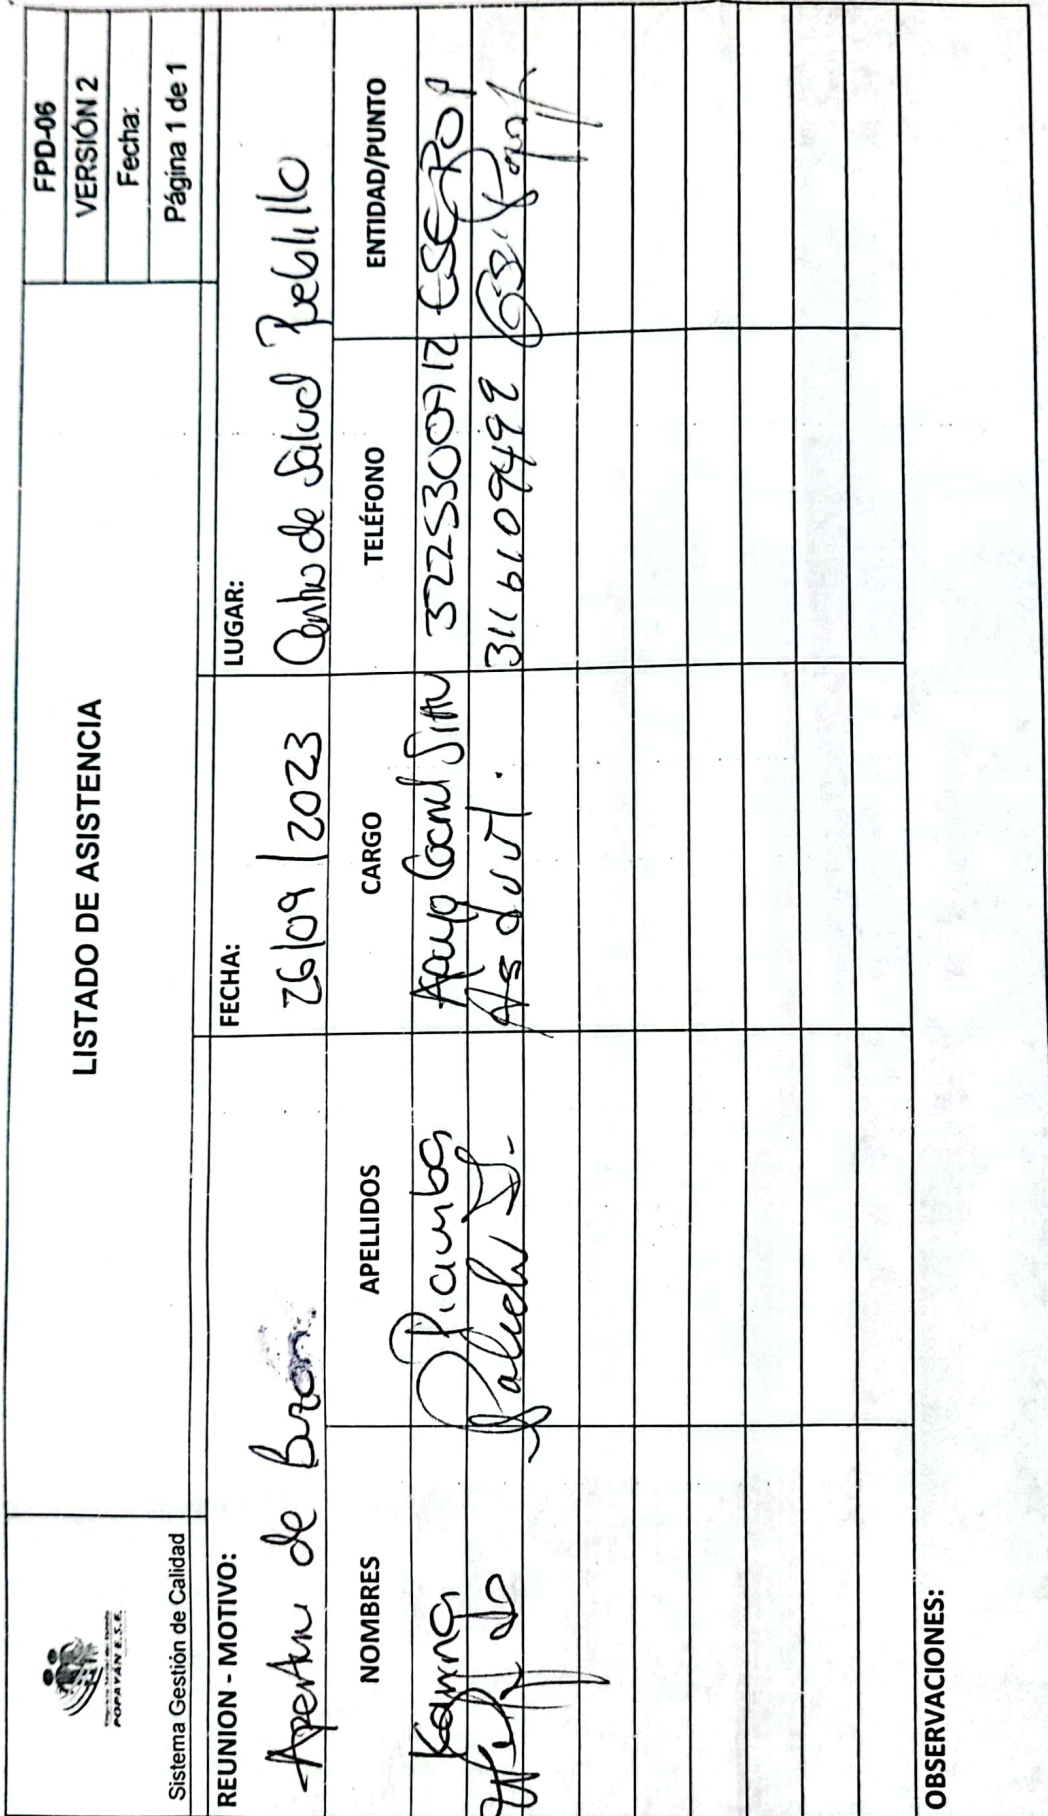 POPAYÁN E.S.E.
Sistema Gestión de Calidad
LISTADO DE ASISTENCIA
FPD-06
VERSIÓN 2
Fecha:
Página 1 de 1
REUNION - MOTIVO:
FECHA:
LUGAR:
de Buzon
26/09/2023
Centro de Salud Pueblillo
NOMBRES
APELLIDOS
CARGO
TELÉFONO
ENTIDAD/PUNTO
Karina Piamba Apoyo 3225300712 ESEPOP
3116109499
OBSERVACIONES: